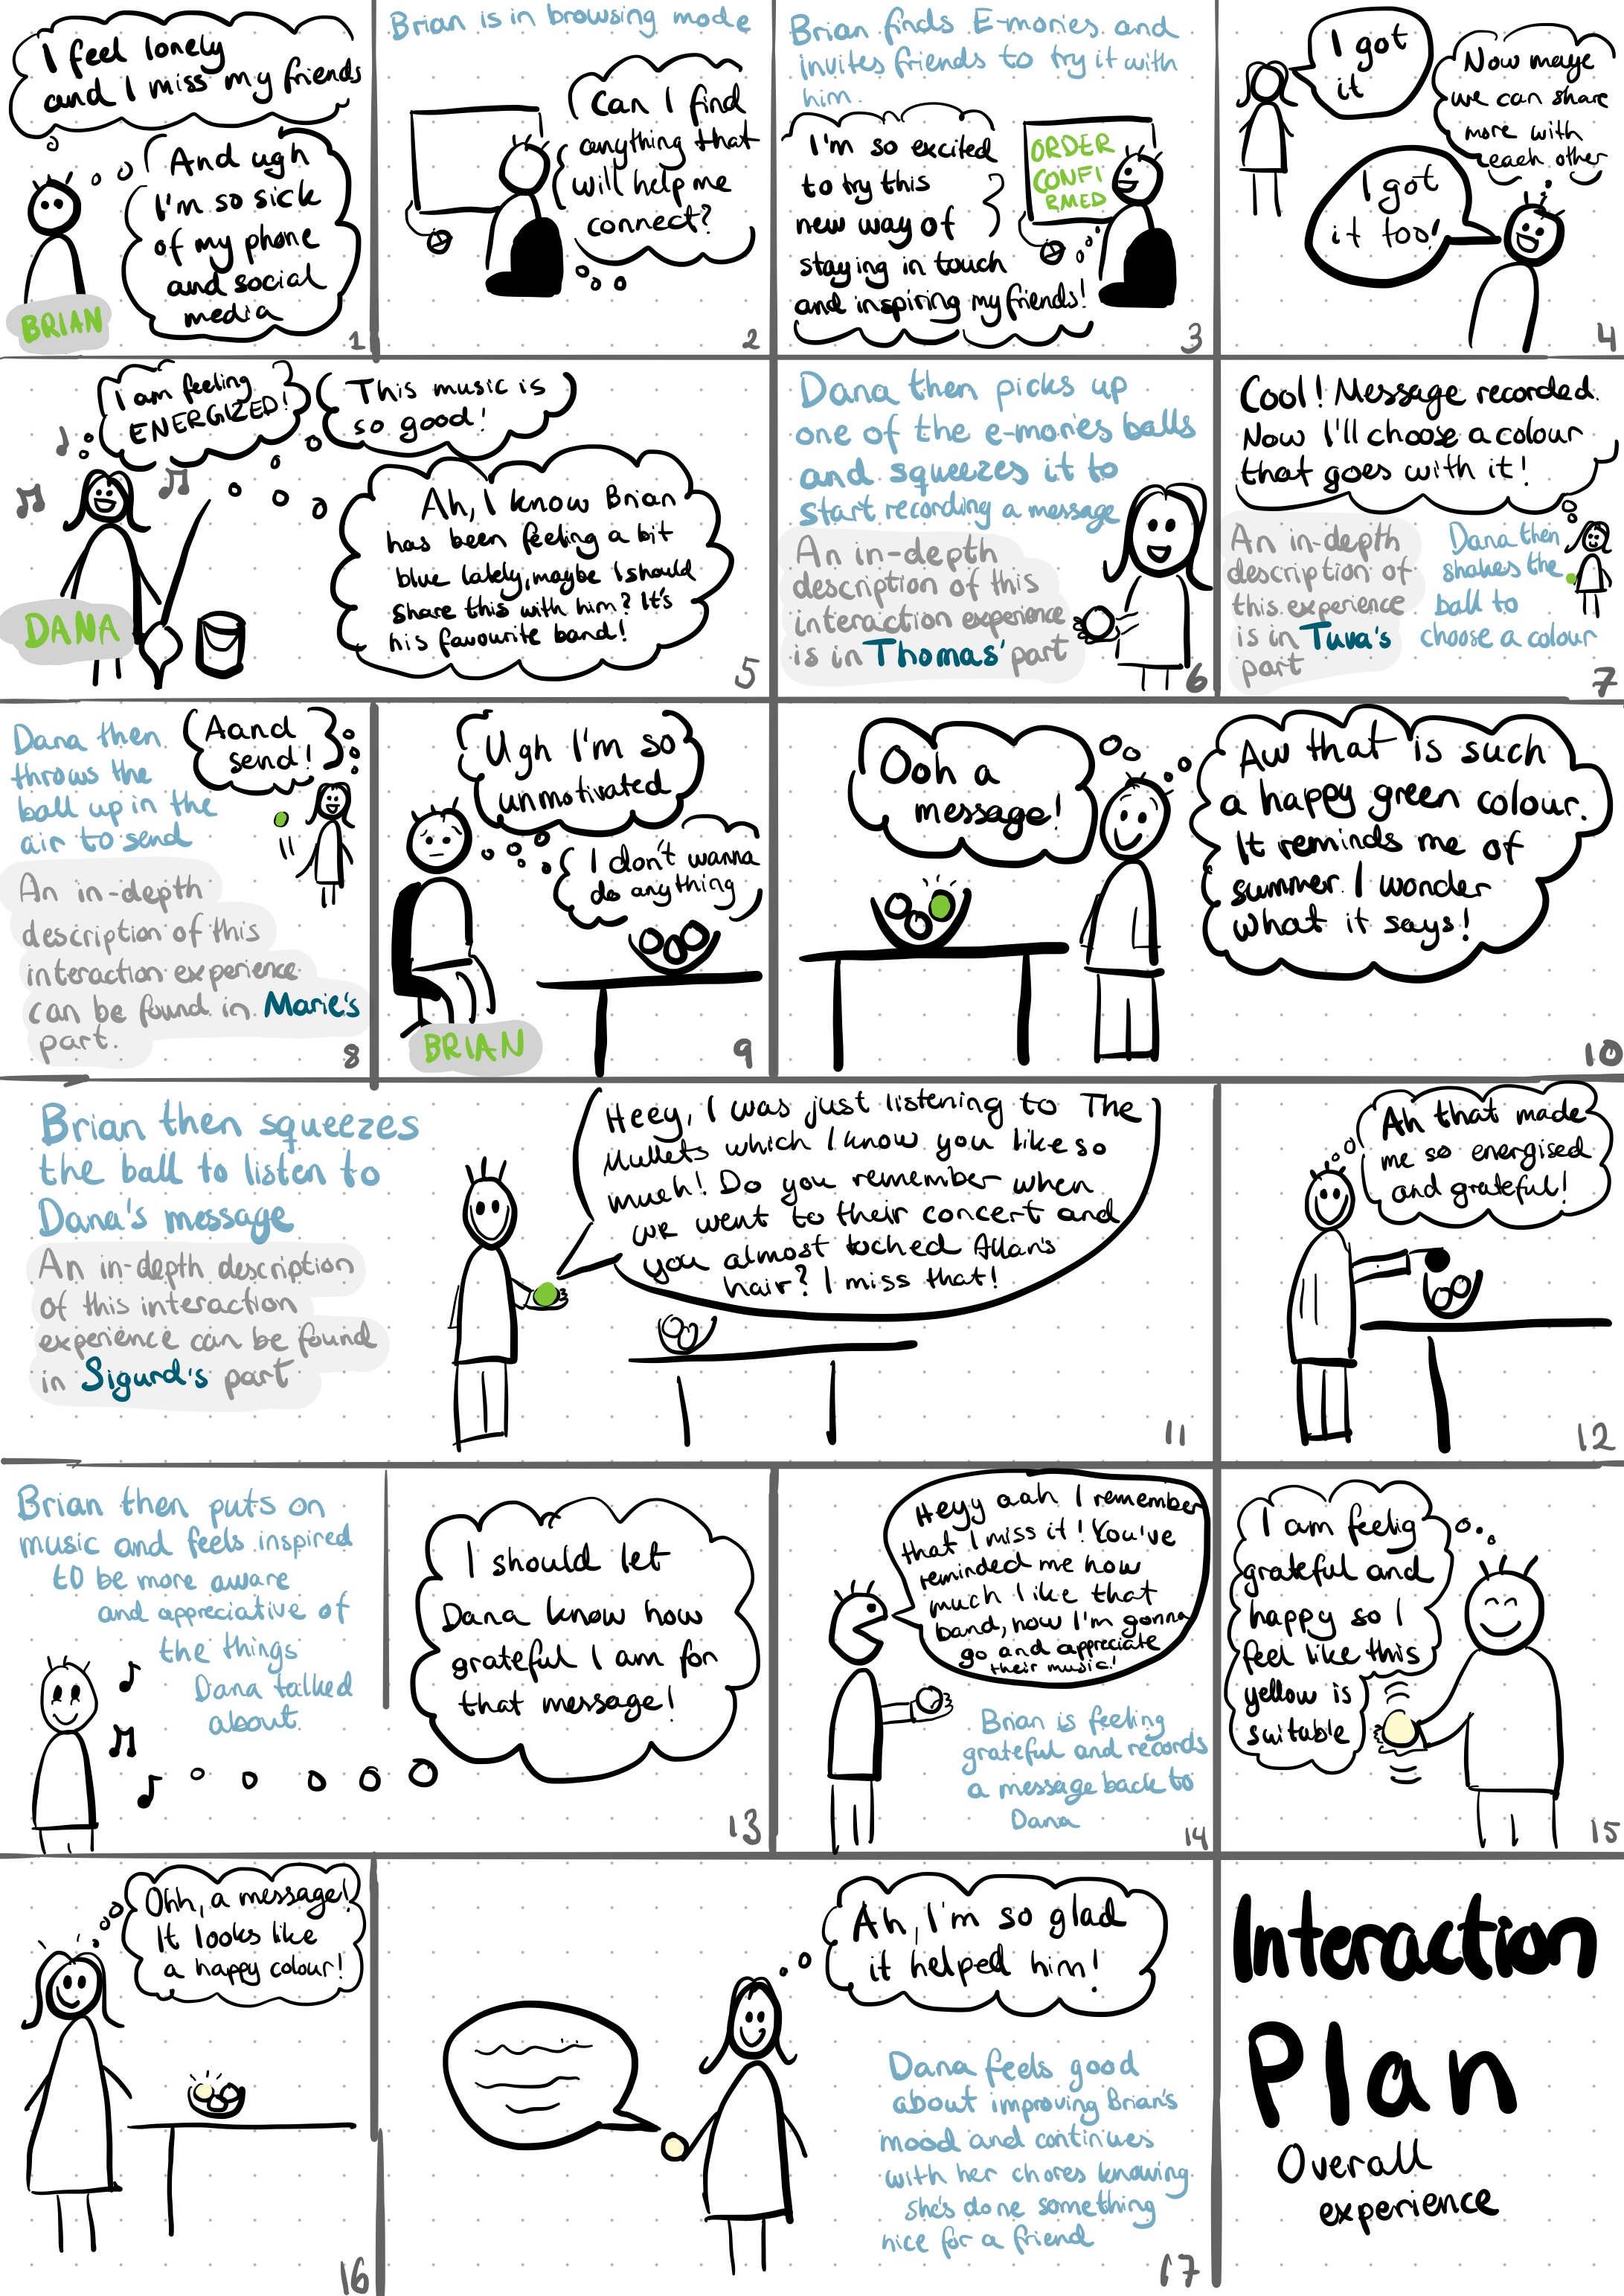 I feel lonely
and I miss my friends
And ugh
I'm so sick
of my phone
and social
media
BRIAN
1
Brian is in browsing mode
Can I find
anything that
will help me
connect?
2
Brian finds E-mories and
invites friends to try it with
him.
I'm so excited
to try this
new way of
staying in touch
and inspiring my friends!
ORDER
CONFI
RMED
3
I got
it
Now maye
we can share
more with
each other
I got
it too!
4
I am feeling
ENERGIZED!
This music is
so good!
Ah, I know Brian
has been feeling a bit
blue lately, maybe I should
share this with him? It's
his favourite band!
DANA
5
Dana then picks up
one of the e-mories balls
and squeezes it to
start recording a message
An in-depth
description of this
interaction experience
is in Thomas' part
6
Cool! Message recorded.
Now I'll choose a colour
that goes with it!
An in-depth
description of
this experience
is in Tuva's
part
Dana then
shakes the
ball to
choose a colour
7
Dana then
throws the
ball up in the
air to send
Aand
send!
An in-depth
description of this
interaction experience
can be found in Marie's
part.
8
Ugh I'm so
unmotivated
I don't wanna
do anything
BRIAN
9
Ooh a
message!
Aw that is such
a happy green colour.
It reminds me of
summer. I wonder
what it says!
10
Brian then squeezes
the ball to listen to
Dana's message
An in-depth description
of this interaction
experience can be found
in Sigurd's part
Heey, I was just listening to The
Mullets which I know you like so
much! Do you remember when
we went to their concert and
you almost toched Allan's
hair? I miss that!
11
Ah that made
me so energised
and grateful!
12
Brian then puts on
music and feels inspired
to be more aware
and appreciative of
the things
Dana talked
about
I should let
Dana know how
grateful I am for
that message!
13
Heyy aah I remember
that I miss it! You've
reminded me how
much I like that
band, now I'm gonna
go and appreciate
their music!
Brian is feeling
grateful and records
a message back to
Dana
14
I am feelig
grateful and
happy so I
feel like this
yellow is
suitable
15
Ohh, a message!
It looks like
a happy colour!
16
Ah, I'm so glad
it helped him!
Dana feels good
about improving Brian's
mood and continues
with her chores knowing
she's done something
nice for a friend
17
Interaction
Plan
Overall
experience